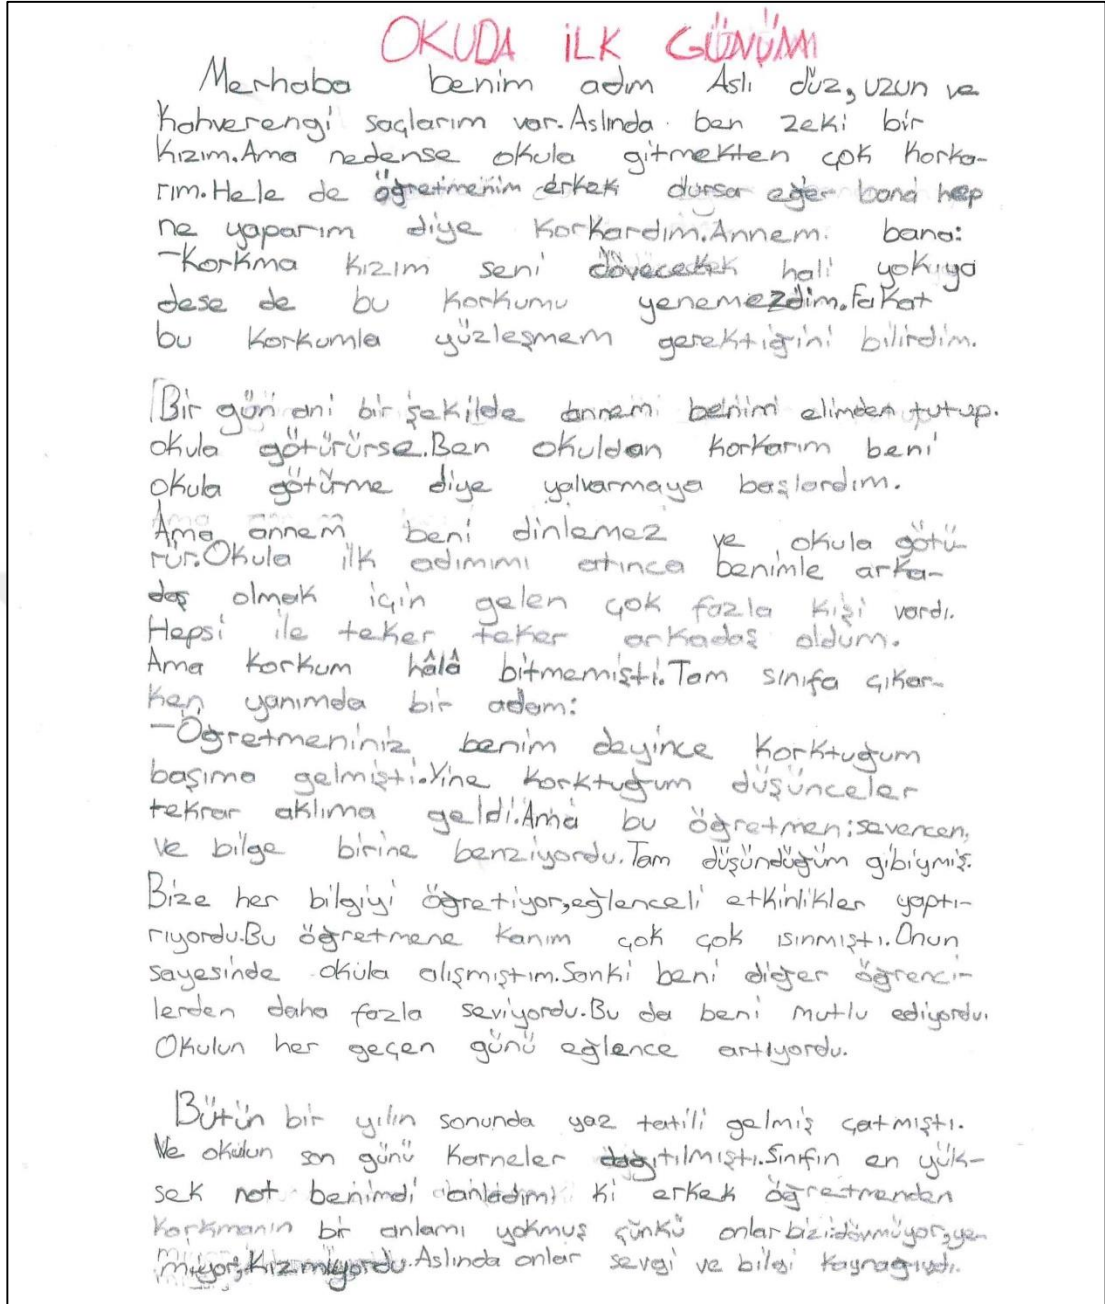 OKUDA İLK GÜNÜM
Merhaba benim adım Aslı düz, uzun ve
Kahverengi saçlarım var. Aslında ben zeki bir
kızım. Ama nedense okula gitmekten çok korka-
rım. Hele de öğretmenim erkek olursa eğer bana hep
ne yaparım diye korkardım. Annem bana:
-Korkma kızım seni dövecek hali yok ya
dese de bu korkumu yenemezdim. Fakat
bu korkumla yüzleşmem gerektiğini bilirdim.
Bir gün ani bir şekilde annem benim elimden tutup.
okula götürürse. Ben okuldan korkarım beni
okula götürme diye yalvarmaya başlardım.
Ama annem beni dinlemez ve okula götü-
rür. Okula ilk adımımı atınca benimle arka-
daş olmak için gelen çok fazla kişi vardı.
Hepsi ile teker teker arkadaş oldum.
Ama korkum hâlâ bitmemişti. Tam sınıfa çıkar-
ken yanımda bir adam:
-Öğretmeniniz benim deyince korktuğum
başıma gelmişti. Yine korktuğum düşünceler
tekrar aklıma geldi. Ama bu öğretmen; sevencen,
ve bilge birine benziyordu. Tam düşündüğüm gibiymiş.
Bize her bilgiyi öğretiyor, eğlenceli etkinlikler yaptı-
rıyordu. Bu öğretmene kanım çok çok ısınmıştı. Onun
sayesinde okula alışmıştım. Sanki beni diğer öğrenci-
lerden daha fazla seviyordu. Bu da beni mutlu ediyordu.
Okulun her geçen günü eğlence artıyordu.
Bütün bir yılın sonunda yaz tatili gelmiş çatmıştı.
Ve okulun son günü karneler dağıtılmıştı. Sınıfın en yük-
sek not benimdi anladım ki erkek öğretmenden
korkmanın bir anlamı yokmuş çünkü onlar bizi dövmüyor, ye-
miyor, kızmıyordu. Aslında onlar sevgi ve bilgi kaynağıydı.